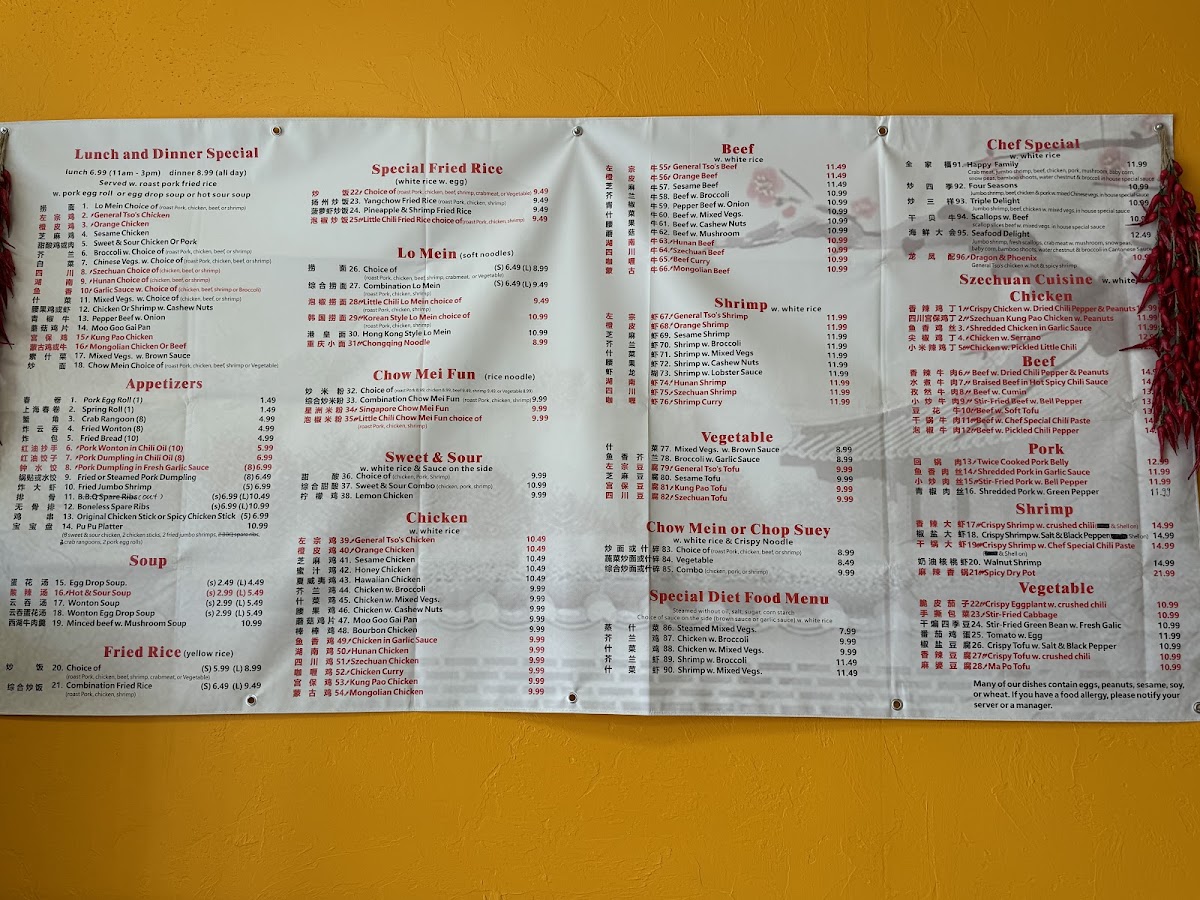 Lunch and Dinner Special
lunch 6.99 (11am - 3pm) dinner 8.99 (all day)
Served w. roast pork fried rice
w. pork egg roll or egg drop soup or hot sour soup
捞 面 1. Lo Mein Choice of (roast Pork, chicken, beef, or shrimp)
左宗鸡 2. General Tso's Chicken
橙皮鸡 3. Orange Chicken
芝麻鸡 4. Sesame Chicken
甜酸鸡或肉 5. Sweet & Sour Chicken Or Pork
芥 兰 6. Broccoli w. Choice of (roast Pork, chicken, beef, or shrimp)
白 菜 7. Chinese Vegs. w. Choice of (roast Pork, chicken, beef, or shrimp)
四 川 8. Szechuan Choice of (chicken, beef, or shrimp)
湖 南 9. Hunan Choice of (chicken, beef, or shrimp)
鱼 香 10. Garlic Sauce w. Choice of (chicken, beef, shrimp or Broccoli)
什 菜 11. Mixed Vegs. w. Choice of (chicken, beef, or shrimp)
腰果鸡或虾 12. Chicken Or Shrimp w. Cashew Nuts
青椒牛 13. Pepper Beef w. Onion
蘑菇鸡片 14. Moo Goo Gai Pan
宫保鸡 15. Kung Pao Chicken
蒙古鸡或牛 16. Mongolian Chicken Or Beef
素什菜 17. Mixed Vegs. w. Brown Sauce
炒 面 18. Chow Mein Choice of (roast Pork, chicken, beef, shrimp or Vegetable)
Appetizers
春 卷 1. Pork Egg Roll (1) 1.49
上海春卷 2. Spring Roll (1) 1.49
蟹 角 3. Crab Rangoon (8) 4.99
炸云吞 4. Fried Wonton (8) 4.99
炸 包 5. Fried Bread (10) 4.99
红油抄手 6. Pork Wonton in Chili Oil (10) 5.99
红油饺子 7. Pork Dumpling in Chili Oil (8) 6.99
钟水饺 8. Pork Dumpling in Fresh Garlic Sauce (8) 6.99
锅贴或水饺 9. Fried or Steamed Pork Dumpling (8) 6.49
炸大虾 10. Fried Jumbo Shrimp (5) 6.99
排 骨 11. B.B.Q Spare Ribs (OUT) (s) 6.99 (L) 10.49
无骨排 12. Boneless Spare Ribs (s) 6.99 (L) 10.99
鸡 串 13. Original Chicken Stick or Spicy Chicken Stick (5) 6.99
宝宝盘 14. Pu Pu Platter 10.99
(8 sweet & sour chicken, 2 chicken sticks, 2 fried jumbo shrimps,
crab rangoons, 2 pork egg rolls)
Soup
蛋花汤 15. Egg Drop Soup. (s) 2.49 (L) 4.49
酸辣汤 16. Hot & Sour Soup (s) 2.99 (L) 5.49
云吞汤 17. Wonton Soup (s) 2.99 (L) 5.49
云吞蛋花汤 18. Wonton Egg Drop Soup (s) 2.99 (L) 5.49
西湖牛肉羹 19. Minced beef w. Mushroom Soup 10.99
Fried Rice (yellow rice)
炒 饭 20. Choice of (S) 5.99 (L) 8.99
(roast Pork, chicken, beef, shrimp, crabmeat, or Vegetable)
综合炒饭 21. Combination Fried Rice (S) 6.49 (L) 9.49
(roast Pork, chicken, shrimp)
Special Fried Rice
(white rice w. egg)
炒 饭 22. Choice of (roast Pork, chicken, beef, shrimp, crabmeat, or Vegetable) 9.49
扬州炒饭 23. Yangchow Fried Rice (roast Pork, chicken, shrimp) 9.49
菠萝虾炒饭 24. Pineapple & Shrimp Fried Rice 9.49
泡椒炒饭 25. Little Chili Fried Rice choice of (roast Pork, chicken, shrimp) 9.49
Lo Mein (soft noodles)
捞 面 26. Choice of (S) 6.49 (L) 8.99
(roast Pork, chicken, beef, shrimp, crabmeat, or Vegetable)
综合捞面 27. Combination Lo Mein (S) 6.49 (L) 9.49
(roast Pork, chicken, shrimp)
泡椒捞面 28. Little Chili Lo Mein choice of 9.49
(roast Pork, chicken, shrimp)
韩国捞面 29. Korean Style Lo Mein choice of 10.99
(roast Pork, chicken, shrimp)
港皇面 30. Hong Kong Style Lo Mein 10.99
重庆小面 31. Chongqing Noodle 8.99
Chow Mei Fun (rice noodle)
炒米粉 32. Choice of
综合炒米粉 33. Combination Chow Mei Fun (roast Pork, chicken, shrimp) 9.99
星洲米粉 34. Singapore Chow Mei Fun 9.99
泡椒米粉 35. Little Chili Chow Mei Fun choice of 9.99
(roast Pork, chicken, shrimp)
Sweet & Sour
w. white rice & Sauce on the side
甜 酸 36. Choice of (chicken, Pork, Shrimp) 9.99
综合甜酸 37. Sweet & Sour Combo (chicken, pork, shrimp) 10.99
柠檬鸡 38. Lemon Chicken 9.99
Chicken
w. white rice
左宗鸡 39. General Tso's Chicken 10.49
橙皮鸡 40. Orange Chicken 10.49
芝麻鸡 41. Sesame Chicken 10.49
蜜汁鸡 42. Honey Chicken 10.49
夏威夷鸡 43. Hawaiian Chicken 10.49
芥兰鸡 44. Chicken w. Broccoli 9.99
什菜鸡 45. Chicken w. Mixed Vegs. 9.99
腰果鸡 46. Chicken w. Cashew Nuts 9.99
蘑菇鸡片 47. Moo Goo Gai Pan 9.99
棒棒鸡 48. Bourbon Chicken 9.99
鱼香鸡 49. Chicken in Garlic Sauce 9.99
湖南鸡 50. Hunan Chicken 9.99
四川鸡 51. Szechuan Chicken 9.99
咖喱鸡 52. Chicken Curry 9.99
宫保鸡 53. Kung Pao Chicken 9.99
蒙古鸡 54. Mongolian Chicken 9.99
Beef
w. white rice
左宗牛 55. General Tso's Beef 11.49
橙皮牛 56. Orange Beef 11.49
芝麻牛 57. Sesame Beef 11.49
芥兰牛 58. Beef w. Broccoli 10.99
青椒牛 59. Pepper Beef w. Onion 10.99
什菜牛 60. Beef w. Mixed Vegs. 10.99
腰果牛 61. Beef w. Cashew Nuts 10.99
蘑菇牛 62. Beef w. Mushroom 10.99
湖南牛 63. Hunan Beef 10.99
四川牛 64. Szechuan Beef 10.99
咖喱牛 65. Beef Curry 10.99
蒙古牛 66. Mongolian Beef 10.99
Shrimp w. white rice
左宗虾 67. General Tso's Shrimp 11.99
橙皮虾 68. Orange Shrimp 11.99
芝麻虾 69. Sesame Shrimp 11.99
芥兰虾 70. Shrimp w. Broccoli 11.99
什菜虾 71. Shrimp w. Mixed Vegs 11.99
腰果虾 72. Shrimp w. Cashew Nuts 11.99
虾龙湖 73. Shrimp w. Lobster Sauce 11.99
湖南虾 74. Hunan Shrimp 11.99
四川虾 75. Szechuan Shrimp 11.99
咖喱虾 76. Shrimp Curry 11.99
Vegetable
什 菜 77. Mixed Vegs. w. Brown Sauce 8.99
鱼香芥兰 78. Broccoli w. Garlic Sauce 8.99
左宗豆腐 79. General Tso's Tofu 9.99
芝麻豆腐 80. Sesame Tofu 9.99
宫保豆腐 81. Kung Pao Tofu 9.99
四川豆腐 82. Szechuan Tofu 9.99
Chow Mein or Chop Suey
w. white rice & Crispy Noodle
炒面或什碎 83. Choice of (roast Pork, chicken, beef, or shrimp) 8.99
蔬菜炒面或什碎 84. Vegetable 8.49
综合炒面或什碎 85. Combo (chicken, pork, shrimp) 9.99
Special Diet Food Menu
Steamed without oil, salt, sugar, corn starch
Choice of sauce on the side (brown sauce or garlic sauce) w. white rice
蒸什菜 86. Steamed Mixed Vegs. 7.99
芥兰鸡 87. Chicken w. Broccoli 9.99
什菜鸡 88. Chicken w. Mixed Vegs. 9.99
芥兰虾 89. Shrimp w. Broccoli 11.49
什菜虾 90. Shrimp w. Mixed Vegs. 11.49
Chef Special
w. white rice
全家福 91. Happy Family 11.99
Crab meat, jumbo shrimp, beef, chicken, pork, mushroom, baby corn,
snow peas, bamboo shoots, water chestnut & broccoli in house special sauce
炒四季 92. Four Seasons 10.99
Jumbo shrimp, beef, chicken & pork w. mixed Chinese vegs. in house special sauce
炒三祥 93. Triple Delight 10.99
Jumbo shrimp, beef, chicken w. mixed vegs. in house special sauce
干贝牛 94. Scallops w. Beef 10.99
Scallop w. beef mixed vegs. in house special sauce
海鲜大会 95. Seafood Delight 12.49
Jumbo shrimp, fresh scallops, crab meat w. mushroom, snow peas,
baby corn, bamboo shoots, water chestnut & broccoli in Cantonese Sauce
龙凤配 96. Dragon & Phoenix 10.99
General Tso's chicken w. hot & spicy shrimp
Szechuan Cuisine w. white
Chicken
香辣鸡丁 1. Crispy Chicken w. Dried Chili Pepper & Peanuts 11.99
四川宫保鸡丁 2. Szechuan Kung Pao Chicken w. Peanuts 11.99
鱼香鸡丝 3. Shredded Chicken in Garlic Sauce
尖椒鸡丁 4. Chicken w. Serrano
小米辣鸡丁 5. Chicken w. Pickled Little Chili
Beef
香辣牛肉 6. Beef w. Dried Chili Pepper & Peanuts
水煮牛肉 7. Braised Beef in Hot Spicy Chili Sauce
孜然牛肉 8. Beef w. Cumin
小炒牛肉 9. Stir-Fried Beef w. Bell Pepper
豆花牛 10. Beef w. Soft Tofu
干锅牛肉 11. Beef w. Chef Special Chili Paste
泡椒牛肉 12. Beef w. Pickled Chili Pepper
Pork
回锅肉 13. Twice Cooked Pork Belly 12.99
鱼香肉丝 14. Shredded Pork in Garlic Sauce 11.99
小炒肉丝 15. Stir-Fried Pork w. Bell Pepper 11.99
青椒肉丝 16. Shredded Pork w. Green Pepper 11.99
Shrimp
香辣大虾 17. Crispy Shrimp w. crushed chili & Shell on) 14.99
椒盐大虾 18. Crispy Shrimp w. Salt & Black Pepper & Shell on) 14.99
干锅大虾 19. Crispy Shrimp w. Chef Special Chili Paste 14.99
& Shell on)
奶油核桃虾 20. Walnut Shrimp 14.99
麻辣香锅 21. Spicy Dry Pot 21.99
Vegetable
脆皮茄子 22. Crispy Eggplant w. crushed chili 10.99
手撕包菜 23. Stir-Fried Cabbage 10.99
干煸四季豆 24. Stir-Fried Green Bean w. Fresh Garlic 10.99
番茄鸡蛋 25. Tomato w. Egg 11.99
椒盐豆腐 26. Crispy Tofu w. Salt & Black Pepper 10.99
香辣豆腐 27. Crispy Tofu w. crushed chili 10.99
麻婆豆腐 28. Ma Po Tofu 10.99
Many of our dishes contain eggs, peanuts, sesame, soy,
or wheat. If you have a food allergy, please notify your
server or a manager.